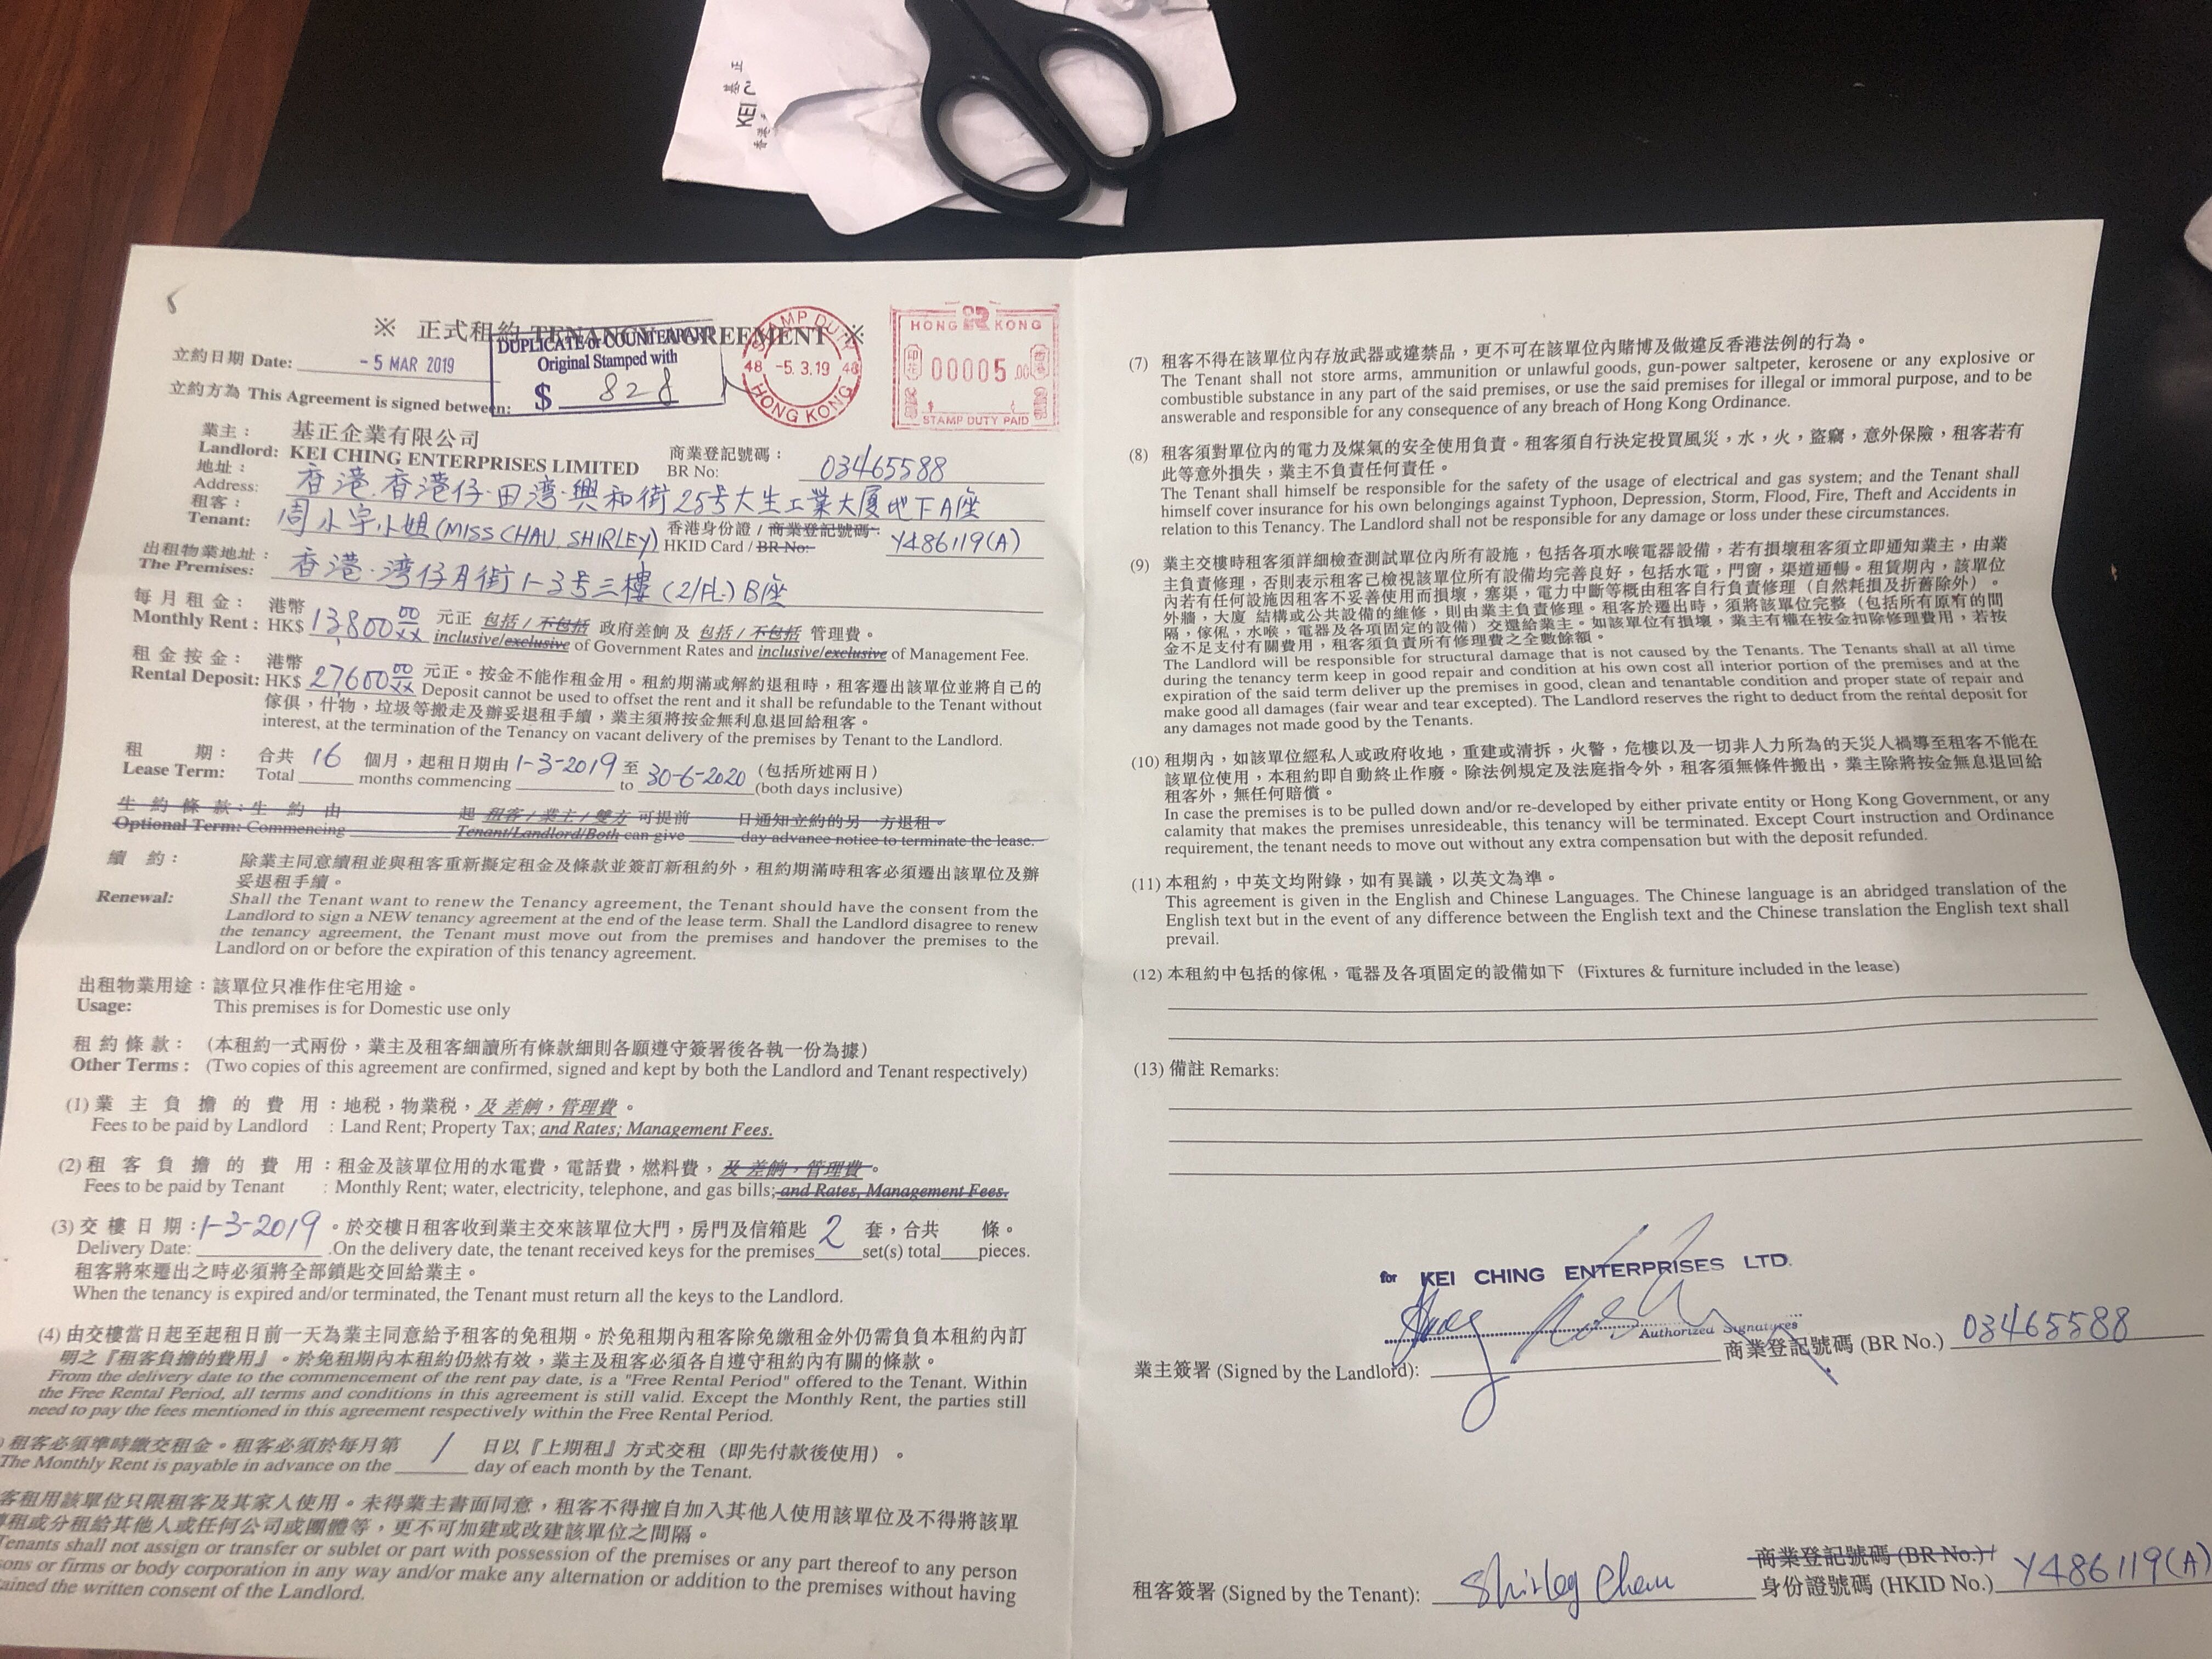 基 正
KEI C
香港
※ 正式租約 TENANCY AGREEMENT ※
DUPLICATE or COUNTERPART
Original Stamped with
$ 828
STAMP DUTY
48 -5.3.19 48
HONG KONG
HONG KONG
印花
00005.00
香港
STAMP DUTY PAID
立約日期 Date: - 5 MAR 2019
立約方為 This Agreement is signed between:
業主： 基正企業有限公司 商業登記號碼：
Landlord: KEI CHING ENTERPRISES LIMITED BR No: 03465588
地址：
Address: 香港.香港仔.田湾.興和街25号大生工業大厦地下A座
租客： 香港身份證 / 商業登記號碼:
Tenant: 周小宇小姐(MISS CHAU, SHIRLEY) HKID Card / BR No: Y486119(A)
出租物業地址：
The Premises: 香港.湾仔月街1-3号三樓(2/FL.)B座
每月租金： 港幣 元正 包括 / 不包括 政府差餉 及 包括 / 不包括 管理費。
Monthly Rent : HK$ 13,800 00/XX inclusive/exclusive of Government Rates and inclusive/exclusive of Management Fee.
租金按金： 港幣 元正。按金不能作租金用。租約期滿或解約退租時，租客遷出該單位並將自己的
Rental Deposit: HK$ 27,600 00/XX Deposit cannot be used to offset the rent and it shall be refundable to the Tenant without
傢俱，什物，垃圾等搬走及辦妥退租手續，業主須將按金無利息退回給租客。
interest, at the termination of the Tenancy on vacant delivery of the premises by Tenant to the Landlord.
租 期： 合共 16 個月，起租日期由 1-3-2019 至 30-6-2020 (包括所述兩日)
Lease Term: Total months commencing to (both days inclusive)
生 約 條 款：生 約 由 起 租客 / 業主 / 雙方 可提前 日通知立約的另一方退租。
Optional Term: Commencing Tenant/Landlord/Both can give day advance notice to terminate the lease.
續 約： 除業主同意續租並與租客重新擬定租金及條款並簽訂新租約外，租約期滿時租客必須遷出該單位及辦
妥退租手續。
Renewal: Shall the Tenant want to renew the Tenancy agreement, the Tenant should have the consent from the
Landlord to sign a NEW tenancy agreement at the end of the lease term. Shall the Landlord disagree to renew
the tenancy agreement, the Tenant must move out from the premises and handover the premises to the
Landlord on or before the expiration of this tenancy agreement.
出租物業用途：該單位只准作住宅用途。
Usage: This premises is for Domestic use only
租 約 條 款： (本租約一式兩份，業主及租客細讀所有條款細則各願遵守簽署後各執一份為據)
Other Terms : (Two copies of this agreement are confirmed, signed and kept by both the Landlord and Tenant respectively)
(1) 業 主 負 擔 的 費 用：地税，物業税，及 差餉，管理費。
Fees to be paid by Landlord : Land Rent; Property Tax; and Rates; Management Fees.
(2) 租 客 負 擔 的 費 用：租金及該單位用的水電費，電話費，燃料費，及 差餉，管理費。
Fees to be paid by Tenant : Monthly Rent; water, electricity, telephone, and gas bills; and Rates, Management Fees.
(3) 交 樓 日 期：1-3-2019。於交樓日租客收到業主交來該單位大門，房門及信箱匙 2 套，合共 條。
Delivery Date: .On the delivery date, the tenant received keys for the premises set(s) total pieces.
租客將來遷出之時必須將全部鎖匙交回給業主。
When the tenancy is expired and/or terminated, the Tenant must return all the keys to the Landlord.
(4) 由交樓當日起至起租日前一天為業主同意給予租客的免租期。於免租期內租客除免繳租金外仍需負負本租約內訂
明之『租客負擔的費用』。於免租期內本租約仍然有效，業主及租客必須各自遵守租約內有關的條款。
From the delivery date to the commencement of the rent pay date, is a "Free Rental Period" offered to the Tenant. Within
the Free Rental Period, all terms and conditions in this agreement is still valid. Except the Monthly Rent, the parties still
need to pay the fees mentioned in this agreement respectively within the Free Rental Period.
) 租客必須準時繳交租金。租客必須於每月第 1 日以『上期租』方式交租 (即先付款後使用) 。
The Monthly Rent is payable in advance on the day of each month by the Tenant.
客租用該單位只限租客及其家人使用。未得業主書面同意，租客不得擅自加入其他人使用該單位及不得將該單
轉租或分租給其他人或任何公司或團體等，更不可加建或改建該單位之間隔。
Tenants shall not assign or transfer or sublet or part with possession of the premises or any part thereof to any person
sons or firms or body corporation in any way and/or make any alternation or addition to the premises without having
tained the written consent of the Landlord.
(7) 租客不得在該單位內存放武器或違禁品，更不可在該單位內賭博及做違反香港法例的行為。
The Tenant shall not store arms, ammunition or unlawful goods, gun-power saltpeter, kerosene or any explosive or
combustible substance in any part of the said premises, or use the said premises for illegal or immoral purpose, and to be
answerable and responsible for any consequence of any breach of Hong Kong Ordinance.
(8) 租客須對單位內的電力及煤氣的安全使用負責。租客須自行決定投買風災，水，火，盜竊，意外保險，租客若有
此等意外損失，業主不負責任何責任。
The Tenant shall himself be responsible for the safety of the usage of electrical and gas system; and the Tenant shall
himself cover insurance for his own belongings against Typhoon, Depression, Storm, Flood, Fire, Theft and Accidents in
relation to this Tenancy. The Landlord shall not be responsible for any damage or loss under these circumstances.
(9) 業主交樓時租客須詳細檢查測試單位內所有設施，包括各項水喉電器設備，若有損壞租客須立即通知業主，由業
主負責修理，否則表示租客己檢視該單位所有設備均完善良好，包括水電，門窗，渠道通暢。租賃期內，該單位
內若有任何設施因租客不妥善使用而損壞，塞渠，電力中斷等概由租客自行負責修理 (自然耗損及折舊除外) 。
外牆，大廈 結構或公共設備的維修，則由業主負責修理。租客於遷出時，須將該單位完整 (包括所有原有的間
隔，傢俬，水喉，電器及各項固定的設備) 交還給業主。如該單位有損壞，業主有權在按金扣除修理費用，若按
金不足支付有關費用，租客須負責所有修理費之全數餘額。
The Landlord will be responsible for structural damage that is not caused by the Tenants. The Tenants shall at all time
during the tenancy term keep in good repair and condition at his own cost all interior portion of the premises and at the
expiration of the said term deliver up the premises in good, clean and tenantable condition and proper state of repair and
make good all damages (fair wear and tear excepted). The Landlord reserves the right to deduct from the rental deposit for
any damages not made good by the Tenants.
(10) 租期內，如該單位經私人或政府收地，重建或清拆，火警，危樓以及一切非人力所為的天災人禍導至租客不能在
該單位使用，本租約即自動終止作廢。除法例規定及法庭指令外，租客須無條件搬出，業主除將按金無息退回給
租客外，無任何賠償。
In case the premises is to be pulled down and/or re-developed by either private entity or Hong Kong Government, or any
calamity that makes the premises unresideable, this tenancy will be terminated. Except Court instruction and Ordinance
requirement, the tenant needs to move out without any extra compensation but with the deposit refunded.
(11) 本租約，中英文均附錄，如有異議，以英文為準。
This agreement is given in the English and Chinese Languages. The Chinese language is an abridged translation of the
English text but in the event of any difference between the English text and the Chinese translation the English text shall
prevail.
(12) 本租約中包括的傢俬，電器及各項固定的設備如下 (Fixtures & furniture included in the lease)
(13) 備註 Remarks:
for KEI CHING ENTERPRISES LTD.
Authorized Signatures
業主簽署 (Signed by the Landlord): 商業登記號碼 (BR No.) 03465588
商業登記號碼 (BR No.) /
租客簽署 (Signed by the Tenant): Shirley Chau 身份證號碼 (HKID No.) Y486119(A)